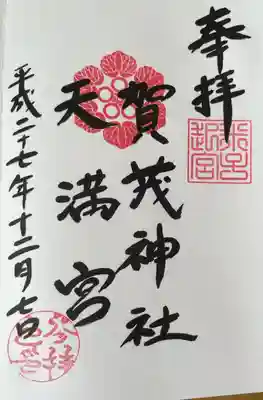 奉拝
賀茂神社
天満宮
平成二十七年十二月七日